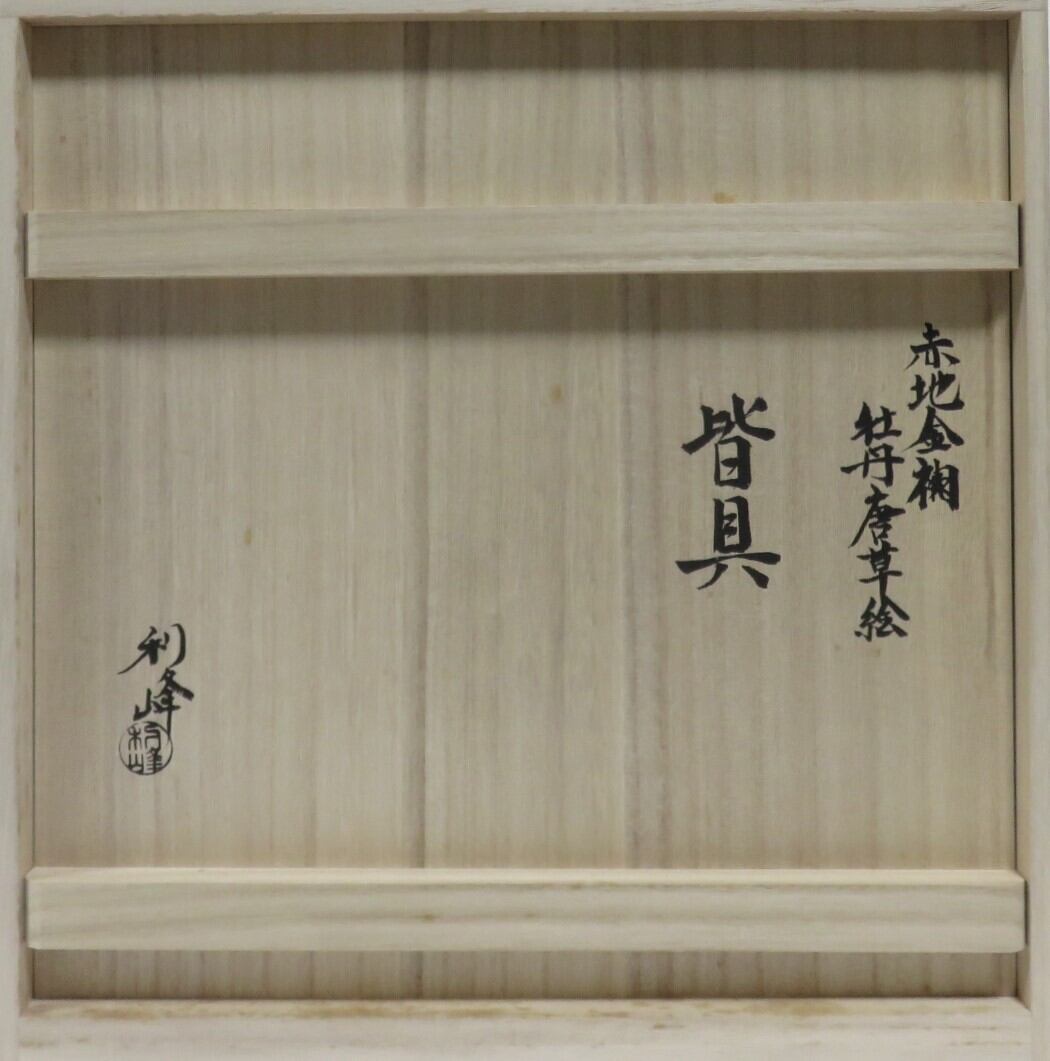 赤地金襴
牡丹唐草絵
皆具
利峰
利峰